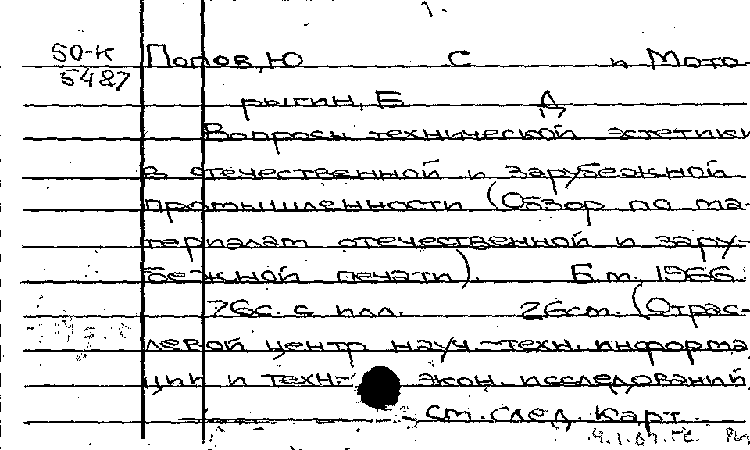 1.
50-К Попов, Ю С и Мото
5487
рыгин, Е Д
Вопросы технической эстетики
в отечественной и зарубежной
промышленности (Обзор по ма-
териалам отечественной и зару-
бежной печати). Б.м. 1966.
76с. с илл. 26см. (Отрас-
левой центр науч.-техн. информа
ции и техн.- экон. исследований
См. след. карт.